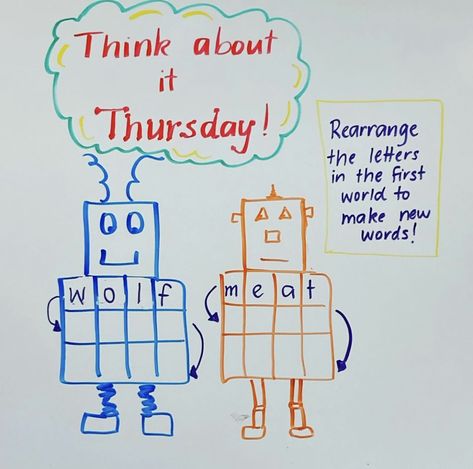 Think about
it
Thursday!
Rearrange
the letters
in the first
world to
make new
words!
wolf
meat